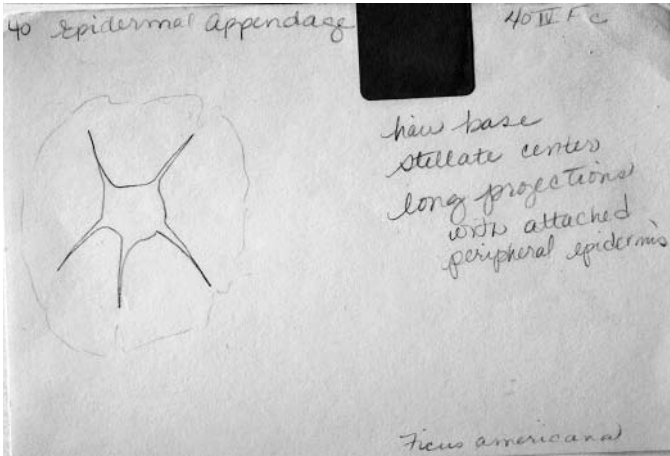 40 Epidermal Appendage
40 IV F c
hair base
stellate center
long projections
with attached
peripheral epidermis
Ficus americana